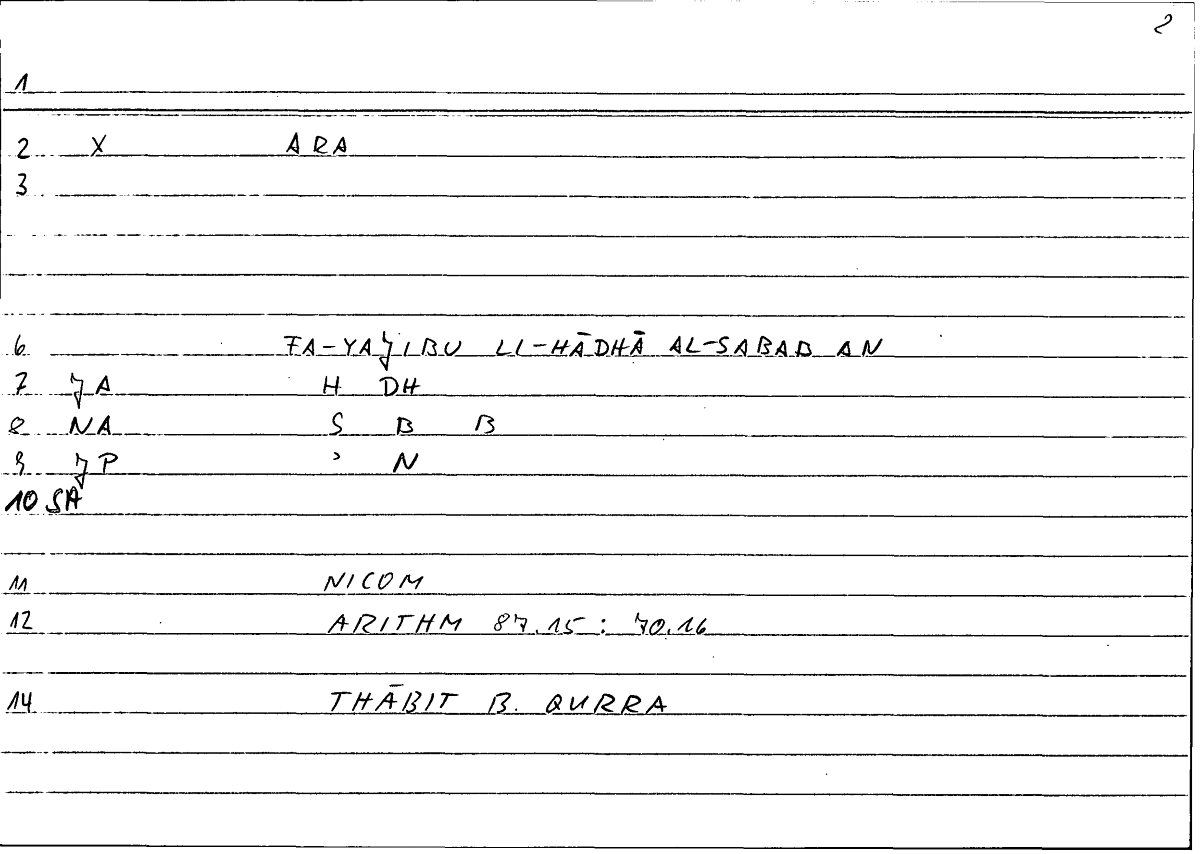 2
1
2 X ARA
3
6 FA-YAJIBU LI-HĀDHĀ AL-SABAB AN
7 JA H DH
8 NA S B B
9 JP ʾ N
10 SA
11 NICOM
12 ARITHM 87.15 : 70.16
14 THĀBIT B. QURRA